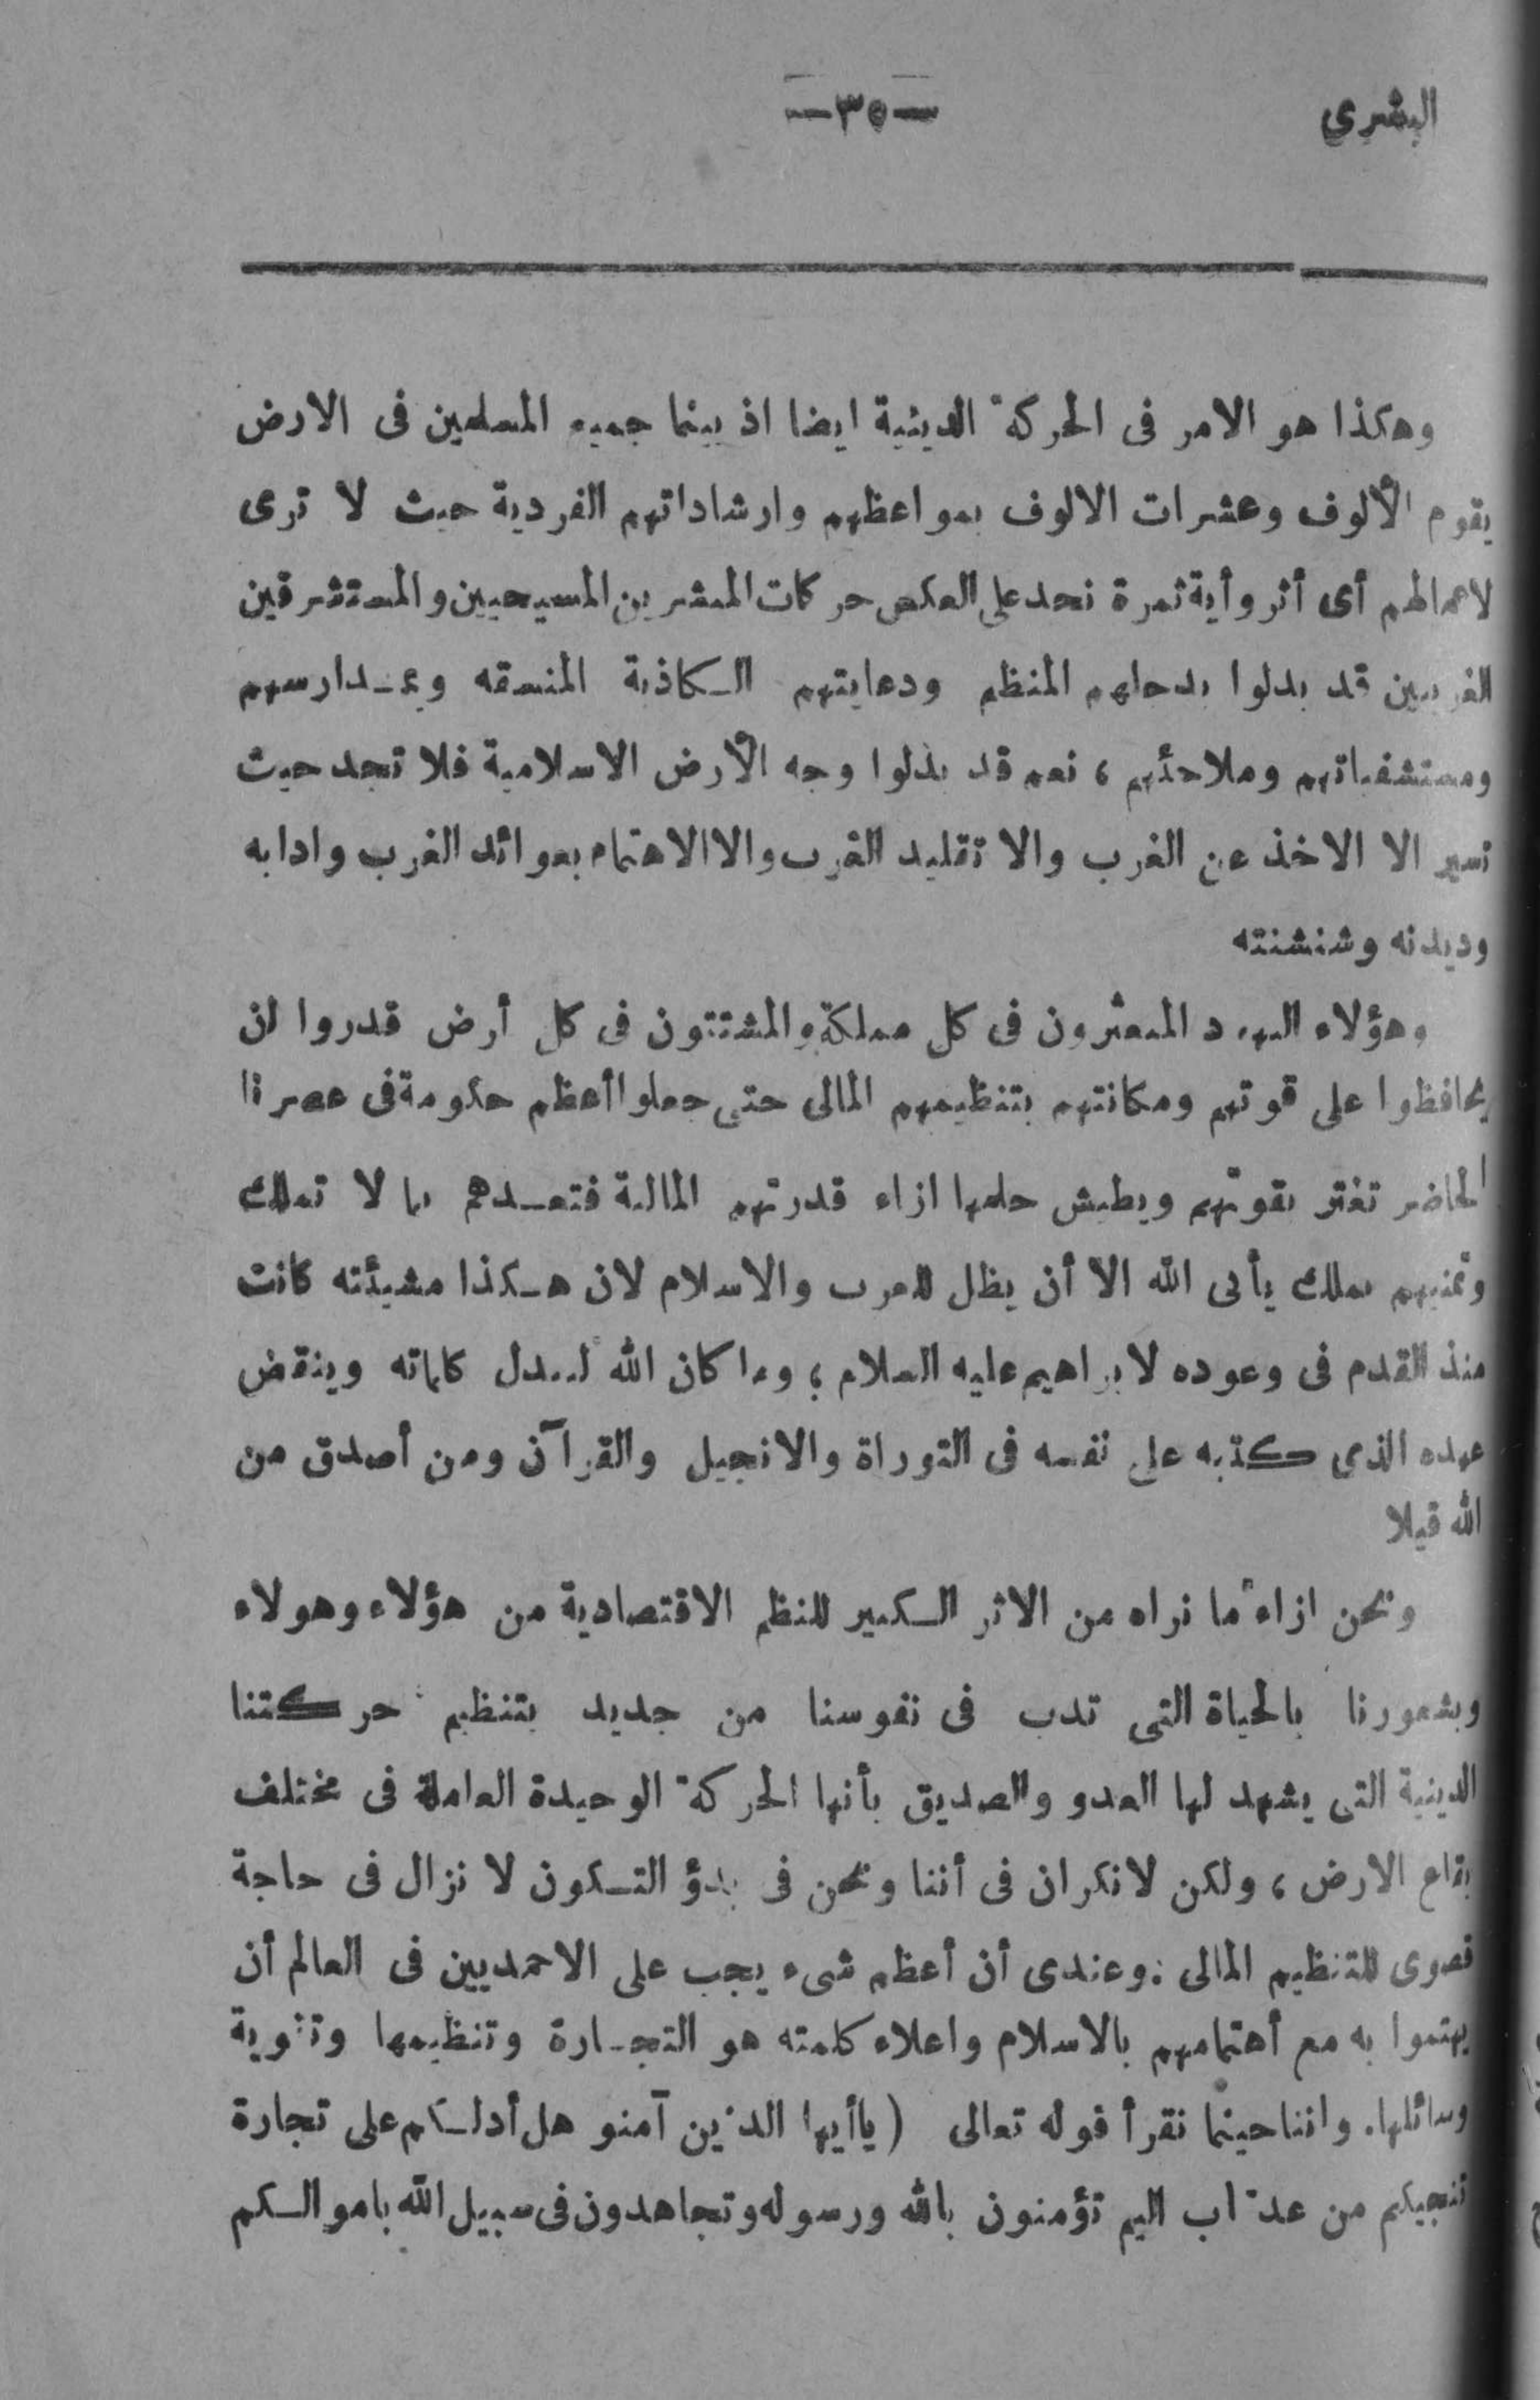 البشرى
—٣٥—
وهكذا هو الامر فى الحركة الدينية ايضا اذ بينما جميع المسلمين فى الارض
يقوم الألوف وعشرات الالوف بمواعظهم وارشاداتهم الفردية حيث لا ترى
لاعمالهم أى أثر وأية ثمرة نجد على العكس حركات المبشرين المسيحيين والمستشرقين
الغربيين قد بدلوا بدجلهم المنظم ودعايتهم الكاذبة المنسقه وبمدارسهم
ومستشفياتهم وملاجئهم ، نعم قد بدلوا وجه الأرض الاسلامية فلا تجد حيث
تسير الا الاخذ عن الغرب والا تقليد الغرب والا الاهتمام بعوائد الغرب وادابه
وديدنه وشنشنته
وهؤلاء اليهود المبعثرون فى كل مملكة والمشتتون فى كل أرض قدروا ان
يحافظوا على قوتهم ومكانتهم بتنظيمهم المالى حتى جعلوا أعظم حكومة فى عصرنا
الحاضر تغتر بقوتهم ويطيش حلمها ازاء قدرتهم المالية فتعدهم بما لا تملك
وتمنيهم بملك يأبى الله الا أن يظل للعرب والاسلام لان هكذا مشيئته كانت
منذ القدم فى وعوده لابراهيم عليه السلام ؛ وما كان الله ليبدل كلماته وينقض
عهده الذى كتبه على نفسه فى التوراة والانجيل والقرآن ومن أصدق من
الله قيلا
ونحن ازاء ما نراه من الاثر الكبير للنظم الاقتصادية من هؤلاء وهولاء
وبشعورنا بالحياة التى تدب فى نفوسنا من جديد بتنظيم حركتنا
الدينية التى يشهد لها العدو والصديق بأنها الحركة الوحيدة العاملة فى مختلف
بقاع الارض ، ولكن لانكران فى أننا ونحن فى بدؤ التكون لا نزال فى حاجة
قصوى للتنظيم المالى . وعندى أن أعظم شىء يجب على الاحمديين فى العالم أن
يهتموا به مع أهتمامهم بالاسلام واعلاء كلمته هو التجارة وتنظيمها وتقوية
وسائلها. واننا حينما نقرأ قوله تعالى ( ياأيها الذين آمنو هل أدلكم على تجارة
تنجيكم من عذاب اليم تؤمنون بالله ورسوله وتجاهدون فى سبيل الله باموالكم